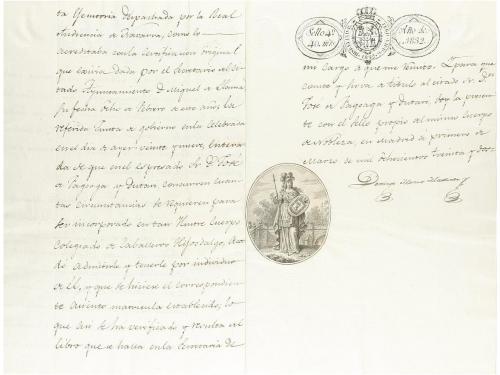 ta Yemeoria despachada por la Real
Audiencia de Navarra, como lo
acreditaba con la certificacion original
que exivia dada por el Secretario del ci-
tado Ayuntamiento Dn Miguel de
su fecha Ocho de Febrero de este año; la
referida Junta de gobierno en la celebrada
en el dia de ayer veinte y nueve, entera-
da de que en el espresado Sr. Dn José
de Pagoaga y Dutari concurren cuan-
tas circunstancias se requieren para
ser incorporado en tan Ilustre Cuerpo
Colegiado de Caballeros Hijosdalgo, Acor-
dó admitirle y tenerle por individuo
de él, y que se hiciese el correspondien-
te asiento matricula establecido; lo
que asi se ha verificado y resulta del
libro que se halla en la Secretaria de
Sello 4º
40. mrs
Año de
1832.
mi cargo a que me remito. Y para que
conste y sirva de titulo al citado Sr. Dn
José de Pagoaga y Dutari, doy la presen-
te con el Sello propio del mismo Cuerpo
de Nobleza, en Madrid a primero de
Marzo de mil ochocientos treinta y dos